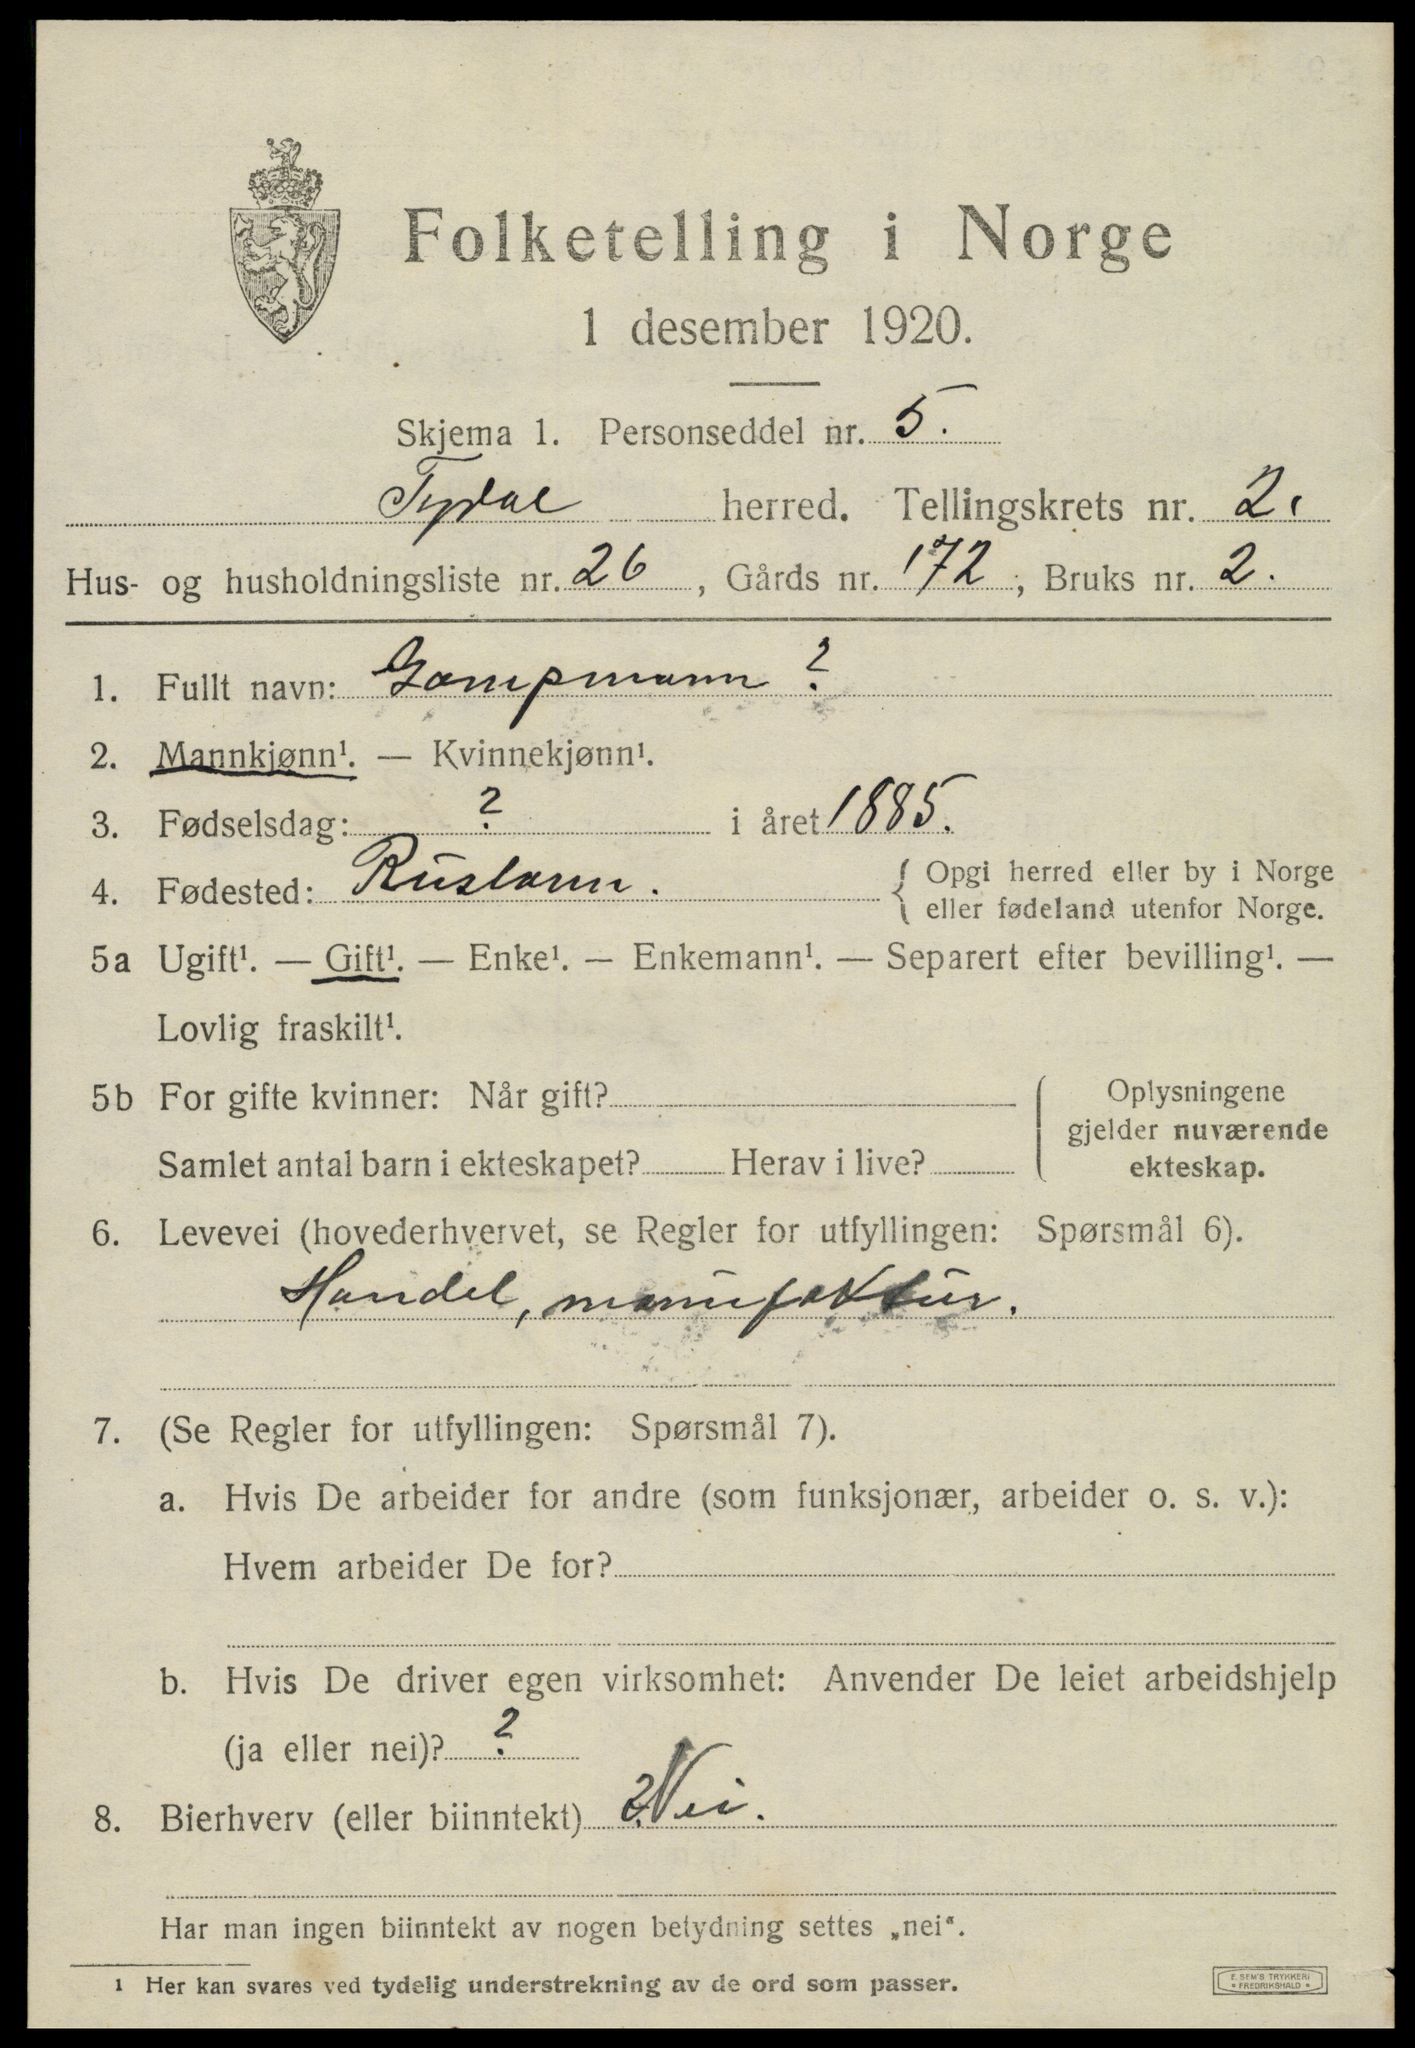 Folketelling i Norge
1 desember 1920.
Skjema 1. Personseddel nr. 5.
Tydal herred. Tellingskrets nr. 2.
Hus- og husholdningsliste nr. 26, Gårds nr. 172, Bruks nr. 2.
1. Fullt navn: Gampmann ?
2. Mannkjønn¹. — Kvinnekjønn¹.
3. Fødselsdag: ? i året 1885.
4. Fødested: Rusland. { Opgi herred eller by i Norge
eller fødeland utenfor Norge.
5a Ugift¹. — Gift¹. — Enke¹. — Enkemann¹. — Separert efter bevilling¹. —
Lovlig fraskilt¹.
5b For gifte kvinner: Når gift?
Samlet antal barn i ekteskapet? Herav i live?
Oplysningene
gjelder nuværende
ekteskap.
6. Levevei (hovederhvervet, se Regler for utfyllingen: Spørsmål 6).
Handel, manufaktur.
7. (Se Regler for utfyllingen: Spørsmål 7).
a. Hvis De arbeider for andre (som funksjonær, arbeider o. s. v.):
Hvem arbeider De for?
b. Hvis De driver egen virksomhet: Anvender De leiet arbeidshjelp
(ja eller nei)? ?
8. Bierhverv (eller biinntekt) ? Nei.
Har man ingen biinntekt av nogen betydning settes „nei“.
¹ Her kan svares ved tydelig understrekning av de ord som passer.
E. SEM'S TRYKKERI
FREDRIKSHALD